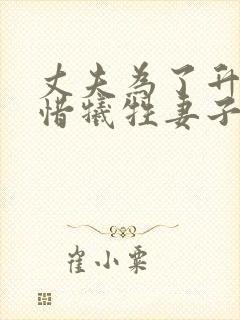 丈夫為了升
惜犧牲妻子
崔小粟